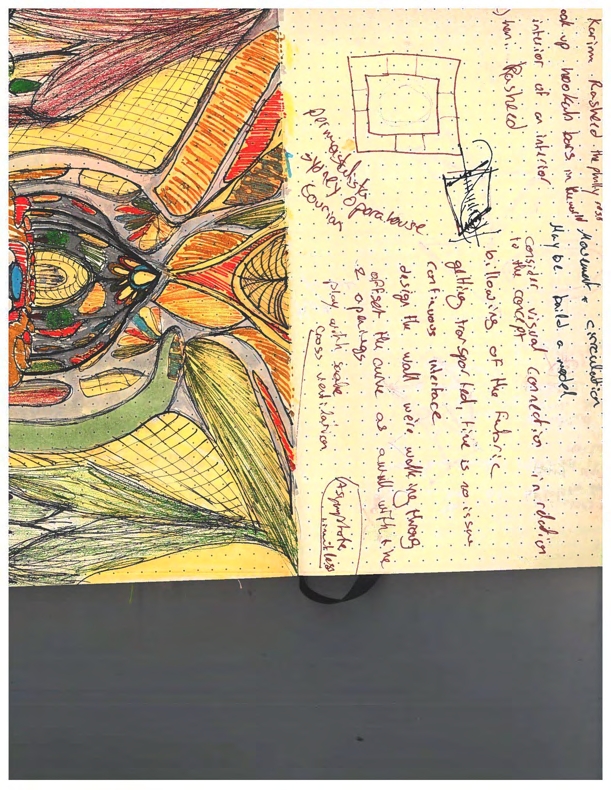 Karim Rasheed the philly ross
ook up hookah bars in
interior of an interior
) hani Rasheed
Movement & circulation
Maybe build a model
Consider visual connection in relation
to the concept
billowing of the fabric
getting transported, time is no issue
continuous interface
design the wall we're walking throug
offset the curve as a wall with the
2 openings
play with scale
cross ventilation
Asymptote
limitless
permastelista
sydney opera house